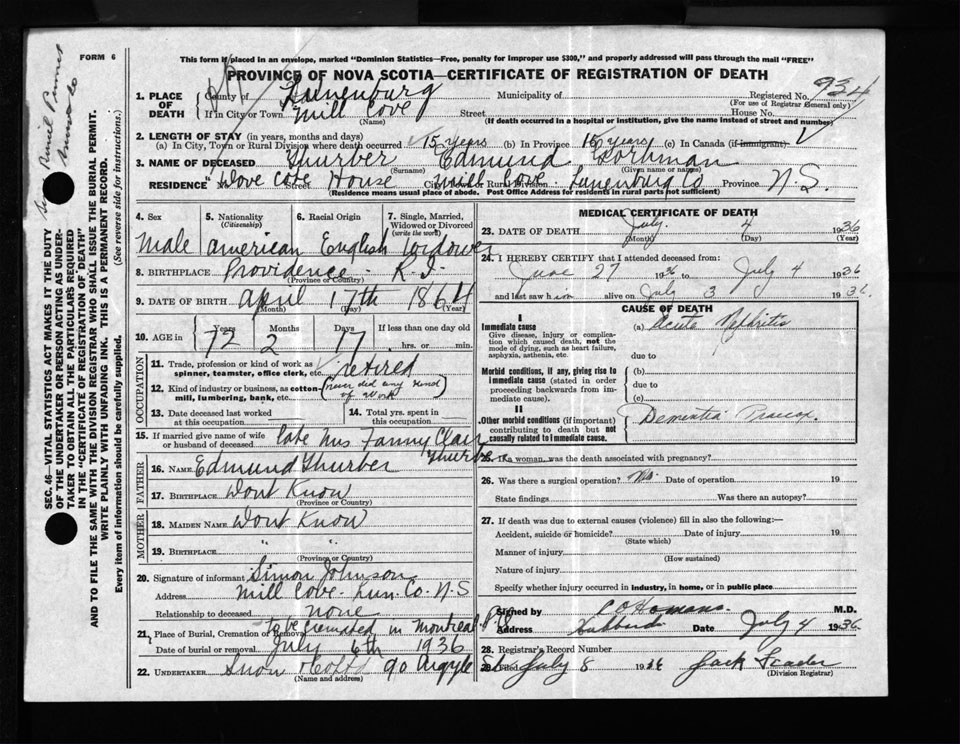 FORM 6
This form if placed in an envelope, marked "Dominion Statistics—Free, penalty for improper use $300," and properly addressed will pass through the mail "FREE"
PROVINCE OF NOVA SCOTIA—CERTIFICATE OF REGISTRATION OF DEATH
SEC. 46—VITAL STATISTICS ACT MAKES IT THE DUTY
OF THE UNDERTAKER OR PERSON ACTING AS UNDER-
TAKER TO OBTAIN ALL THE PARTICULARS REQUIRED
IN THE "CERTIFICATE OF REGISTRATION OF DEATH"
AND TO FILE THE SAME WITH THE DIVISION REGISTRAR WHO SHALL ISSUE THE BURIAL PERMIT.
WRITE PLAINLY WITH UNFADING INK. THIS IS A PERMANENT RECORD.
Every item of information should be carefully supplied. (See reverse side for instructions.)
1. PLACE OF DEATH County of Lunenburg Municipality of Registered No. 934
(For use of Registrar General only)
If in City or Town Mill Cove Street House No.
(Name) (If death occurred in a hospital or institution, give the name instead of street and number)
2. LENGTH OF STAY (in years, months and days)
(a) In City, Town or Rural Division where death occurred 15 years (b) In Province 15 years (c) In Canada (if immigrant)
3. NAME OF DECEASED Thurber Edmund
(Surname) (Given name or names)
RESIDENCE No. Dove Cote Street House City, Town or Rural Division Mill Cove Lunenburg Co Province N.S.
(Residence means usual place of abode. Post Office Address for residents in rural parts not sufficient)
4. Sex 5. Nationality 6. Racial Origin 7. Single, Married,
(Citizenship) Widowed or Divorced
(write the word)
Male American English Widower
8. BIRTHPLACE Providence - R.I.
(Province or Country)
9. DATE OF BIRTH April 17th 1864
(Month) (Day) (Year)
10. AGE in Years Months Days If less than one day old
72 2 17 hrs. or min.
OCCUPATION
11. Trade, profession or kind of work as
spinner, teamster, office clerk, etc. retired
12. Kind of industry or business, as cotton-
mill, lumbering, bank, etc. (never did any kind of work)
13. Date deceased last worked
at this occupation
14. Total yrs. spent in
this occupation
15. If married give name of wife
or husband of deceased late Mrs Fanny Clair Thurber
FATHER
16. NAME Edmund Thurber
17. BIRTHPLACE Dont Know
(Province or Country)
MOTHER
18. MAIDEN NAME Dont Know
19. BIRTHPLACE " "
(Province or Country)
20. Signature of informant Simon Johnson
Address Mill Cove - Lun. Co. N.S
Relationship to deceased none
21. Place of Burial, Cremation or Removal To be cremated in Montreal P.Q
Date of burial or removal July 6th 1936
22. UNDERTAKER Snow 90 Argyle St
(Name and address)
MEDICAL CERTIFICATE OF DEATH
23. DATE OF DEATH July 4 1936
(Month) (Day) (Year)
24. I HEREBY CERTIFY that I attended deceased from:
June 27 1936 to July 4 1936
and last saw him alive on July 3 1936.
CAUSE OF DEATH
I
Immediate cause (a) Acute Nephritis
Give disease, injury or complica-
tion which caused death, not the
mode of dying, such as heart failure,
asphyxia, asthenia, etc. due to
Morbid conditions, if any, giving rise to
immediate cause (stated in order
proceeding backwards from im-
mediate cause).
(b)
due to
(c)
II
Other morbid conditions (if important)
contributing to death but not
causally related to immediate cause. Dementia Praecox.
25. If a woman, was the death associated with pregnancy?
26. Was there a surgical operation? No. Date of operation 19
State findings Was there an autopsy?
27. If death was due to external causes (violence) fill in also the following:—
Accident, suicide or homicide? Date of injury 19
(State which)
Manner of injury
(How sustained)
Nature of injury
Specify whether injury occurred in industry, in home, or in public place
Signed by C O Homans. M.D.
Address Hubbards Date July 4 1936.
28. Registrar's Record Number
29. Filed July 8 1936 Jack
(Division Registrar)